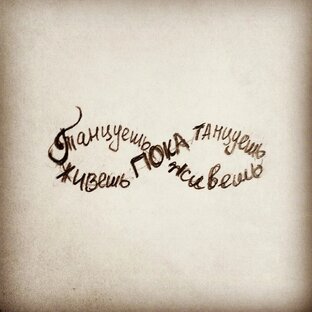 Танцуешь ПОКА танцуешь
живешь живешь